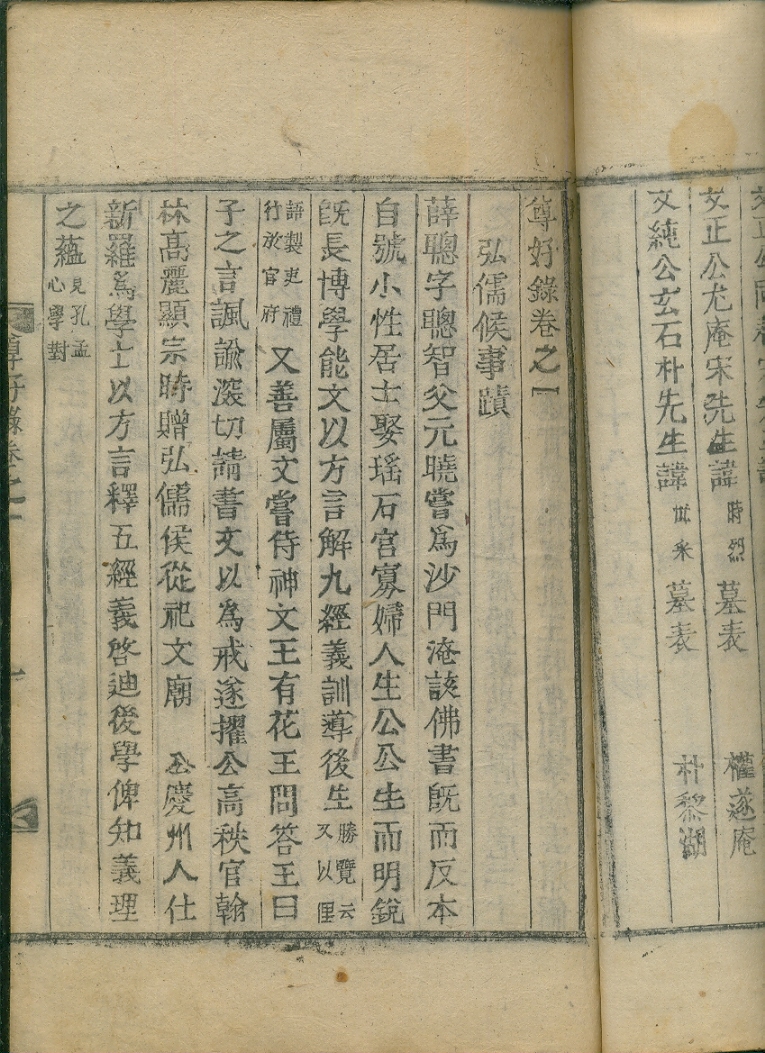 文正公尤庵宋先生諱時烈墓表 權遂庵
文純公玄石朴先生諱世采墓表 朴黎湖
尊好錄卷之一
弘儒候事蹟
薛聰字聰智父元曉嘗爲沙門淹該佛書旣而反本
自號小性居士娶瑤石宮寡婦人生公公生而明銳
旣長博學能文以方言解九經義訓導後生勝覽云又以俚
語製吏禮行於官府又善屬文嘗侍神文王有花王問答王曰
子之言諷諭深切請書文以爲戒遂擢公高秩官翰
林高麗顯宗時贈弘儒侯從祀文廟 公慶州人仕
新羅爲學士以方言釋五經義啓迪後學俾知義理
之蘊見孔孟心學對
尊好錄卷之一 一